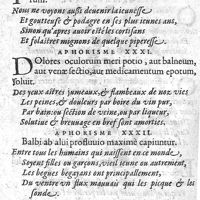 Nous ne voyons aussi devenir la ieunesse
Et goutteuse & podagre en ses plus ieunes ans,
Sinon qu'apres avoir esté les cortisans
Et folastres mignons de quelque piperesse.
APHORISME XXXI.
Dolores oculorum meri potio, aut balneum,
aut venæ sectio, aut medicamentum epotum,
soluit.
Des yeux aitres jumeaux, & flambeaux de nos vies
Les peines, & douleurs par boire du vin pur,
Par bain: ou section de veine, ou par liqueur,
Solutiue & breuuage en bref sont amorties.
APHORISME XXXII.
Balbi ab alui profluuio maxime capiuntur.
Entre tous les humains qui naissent en ce monde,
Soyent filles ou garçons, vieil ieune ou autrement,
Les begues begayans ont principallement,
Du ventre un flux mauuais qui les picque & les
sonde.